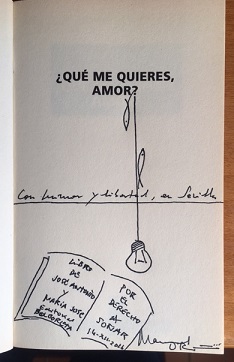 ¿QUÉ ME QUIERES,
AMOR?
Con humor y libertad, en Sevilla
LIBRO
DE
JOSÉ ANTONIO
Y
MARÍA JOSÉ
POR
EL DERECHO
A
SOÑAR